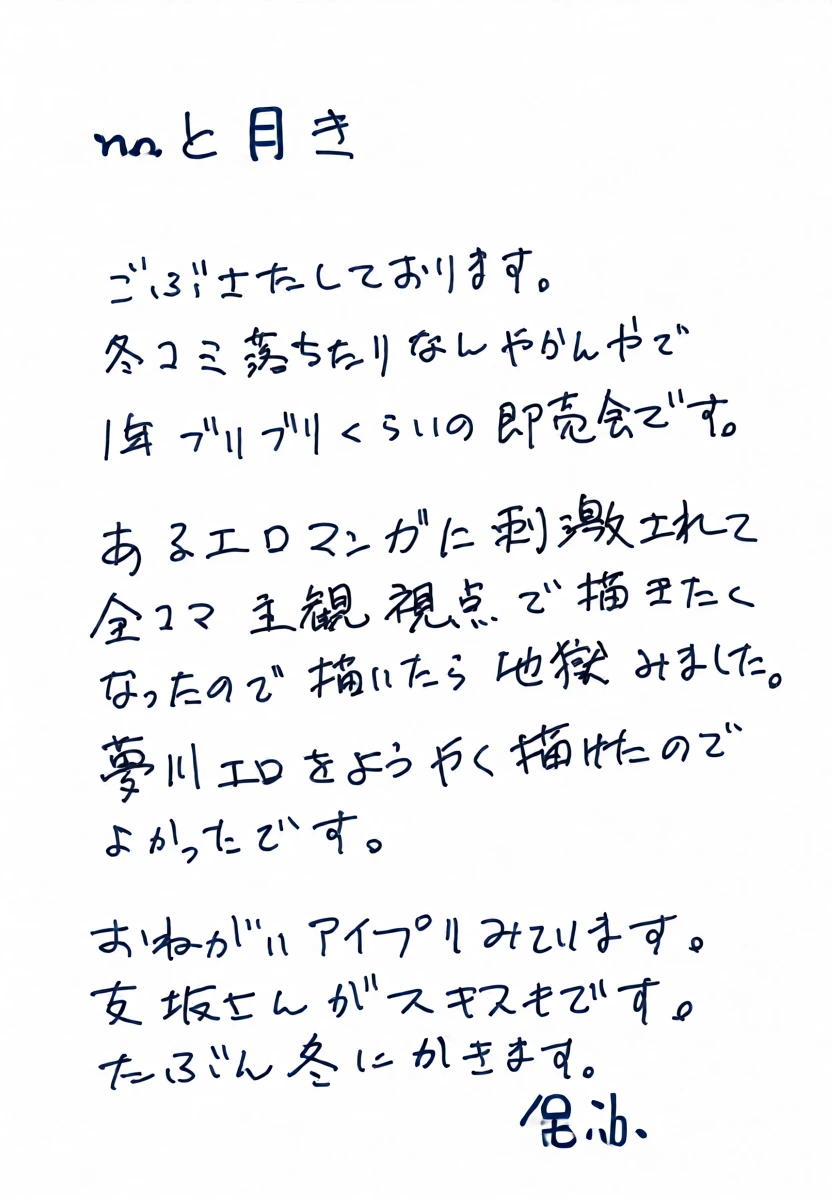 と月き
ごぶさたしております。
冬コミ落ちたりなんやかんやで
1年ブリブリくらいの即売会です。
あるエロマンガに刺激されて
全コマ主観視点で描きたく
なったので描いたら地獄みました。
夢川エロをようやく描けたので
よかったです。
おねがいアイプリみています。
女坂さんがスキスキです。
たぶん冬にかきます。